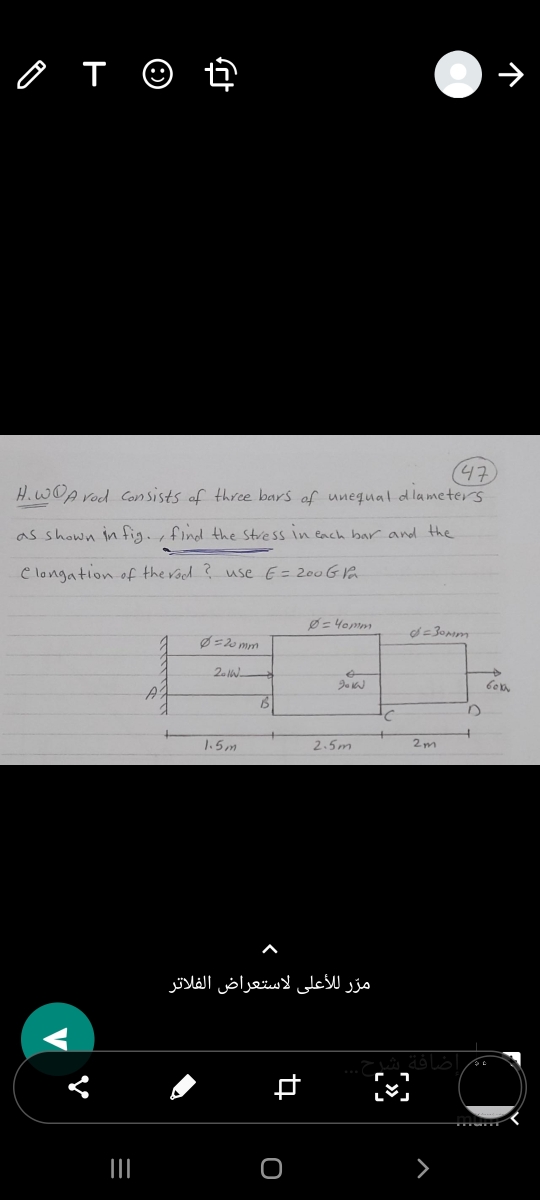 T
47
H.W① A rod consists of three bars of unequal diameters
as shown in fig., find the stress in each bar and the
elongation of the rod ? use E = 200 GPa
Ø = 40mm
Ø = 30mm
Ø = 20mm
20kN
90kN
60kN
A
B
C
D
1.5m
2.5m
2m
مرّر للأعلى لاستعراض الفلاتر
إضافة شرح...